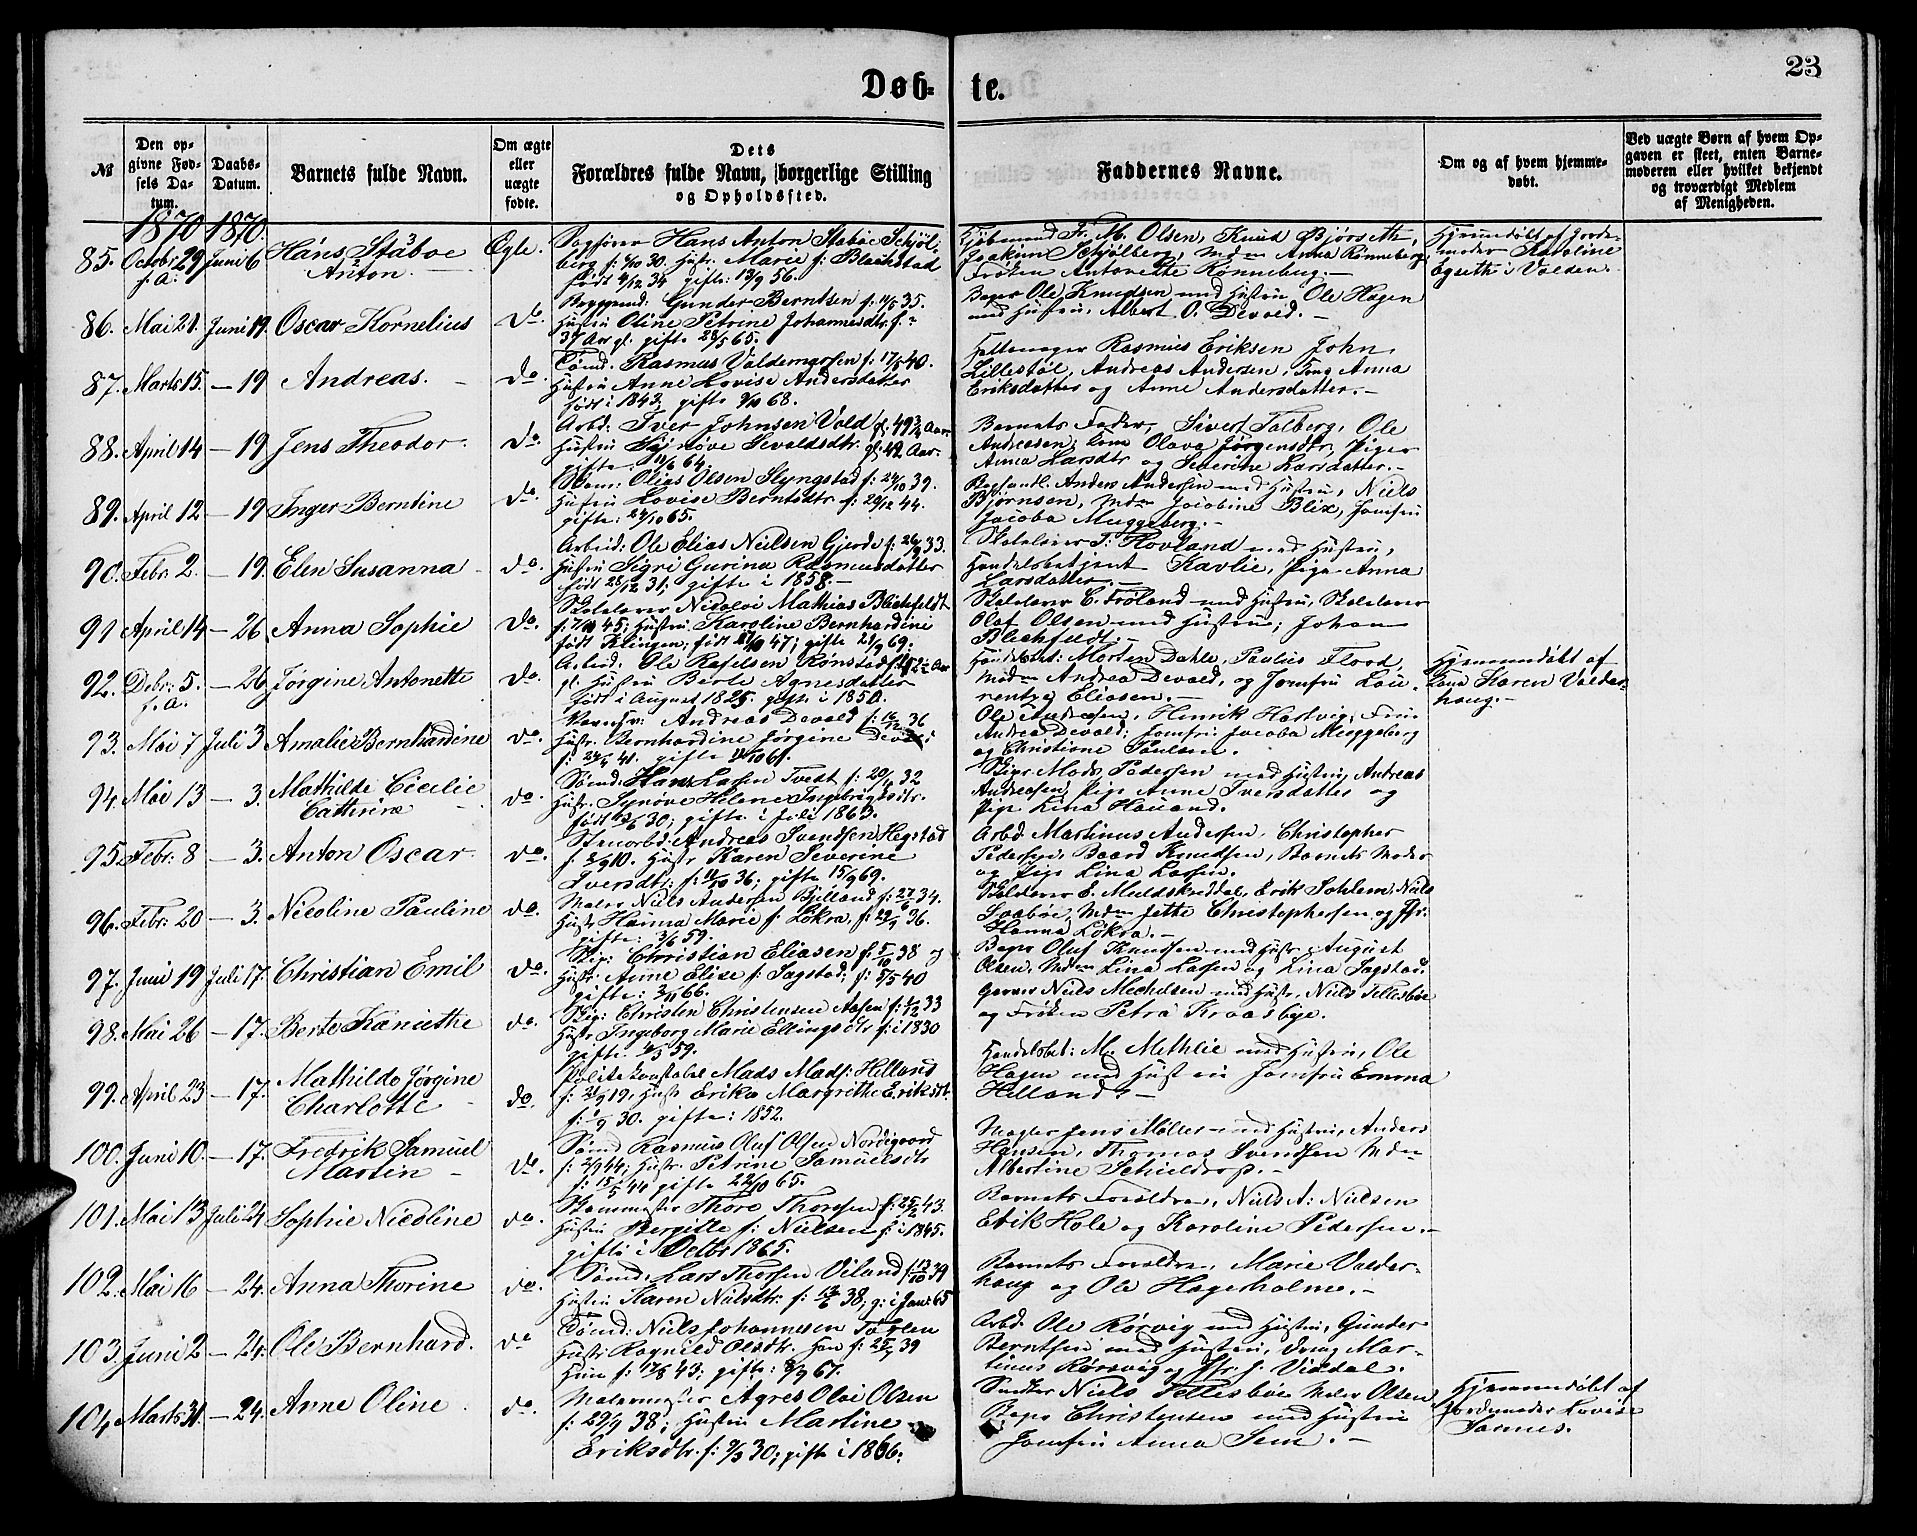 23
Døb- te.
№
Den op-
givne Fød-
sels Da-
tum.
Daabs-
Datum.
Barnets fulde Navn.
Om ægte
eller
uægte
fødte.
Dets
Forældres fulde Navn, borgerlige Stilling
og Opholdssted.
Faddernes Navne.
Om og af hvem hjemme-
døbt.
Ved uægte Børn af hvem Op-
gaven er skeet, enten Barne-
moderen eller hvilket bekjendt
og troværdigt Medlem
af Menigheden.
1870 1870
85. Octobr 29 f. A. Juni 6 Hans Staboe Anton Ægte.
Sagfører Hans Anton Staboe Schjøl-
berg Hustr. Marie f. Blachstad
født 4/12 34 gifte: 56.
Kjøbmand Olsen, Knud Bjørseth,
Joakim Schjølberg, Mdm Anna Rønneberg
Frøken Antonette Rønneberg.
Hjemmedøbt af Jorde-
moder Karoline
Egseth i Volden.
86. Mai 21. Juni 19. Oscar Kornelius do.
Bryggemd: Gunder Berntsen 35.
Hustru Oline Petrine Johannesdtr. f:
37 Aar gl. gifte 28/5 65.
Bager Ole Knudsen med Hustru, Ole Hagen
med Hustru, Albert O. Devold.
87. Marts 15. — 19 Andreas. do.
Tømd. Rasmus Valdemarsen f: 17/5 40.
Hustru Anne Lovise Andersdatter
født i 1843; gifte 68.
Rasmus Eriksen John
Lillestøl, Andreas Andersen, Anna
Eriksdatter og Anne Andersdatter.
88. April 14 — 19 Jens Theodor. do.
Arbd: Iver Johnsen Vold gl. 49 3/4 Aar.
Hustru Synøve Sevaldsdtr. gl: 42 Aar.
gifte 64.
Barnets Fader, Sivert Talberg, Ole
Andreasen, Olava Jørgensdtr, Piger
Anna Larsdtr og Severine Larsdatter.
89. April 12 — 19 Inger Berntine do.
Skom: Olias Olsen Slyngstad f: 24/10 39.
Hustru Lovise Berntsdtr f: 20/12 44.
gifte: 65.
Anders Andersen med Hustru, Niels
Bjørnsen, Mdm Jacobine Blix, Jomfru
Jacoba Muggeberg.
90. Febr. 2. — 19. Elen Susanna do.
Arbeid: Ole Elias Nielsen Gjerde f: 26/9 33.
Hustru Sigri Gurine Rasmusdatter
født 28/12 31; gifte i 1858.
Skolelærer T. Hovland med Hustru,
Handelsbetjent Kavlie, Pige Anna
Larsdatter.
91 April 14 — 26 Anna Sophie do.
Skolelærer Nicolai Mathias Blechfeldt
45; Hustru Karoline Bernhardine
født Klingen, født 47; gifte 69.
Skolelærer C. Frøland med Hustru, Skolelærer
Olaf Olsen med Hustru, Johan
Blechfeldt.
92. Debr: 5. f. A. — 26 Jørgine Antonette do.
Arbeid. Ole Rafelsen Rønstad
gl. Hustru Berte Agnesdatter
født i August 1825 gifte i 1850.
Handelsbet: Morten Dahle, Paulus Flood,
Mdm Andrea Devold, og Jomfru Lau-
rentze Eliasen.
Hjemmedøbt af
Kone Karen Valder-
haug.
93. Mai 7 Juli 3 Amalie Bernhardine do.
Andreas Devold 36
Hustr. Bernhardine Jørgine Devold
41. gifte 61.
Ole Andreasen, Henrik Hartvig, Fru
Andrea Devold; Jomfru Jacoba Muggeberg
og Christiane Paulsen.
94 Mai 13 — 3. Mathilde Cicelie Cathrine do.
Tømd. Hans Larsen Tvedt 32
Hustr. Synøve Helene Ingebrigtsdtr.
født 30; gifte i Juli 1863.
Skipr. Mads Pedersen med Hustru, Andreas
Andreasen, Pige Anne Iversdatter og
Pige Lina Hauand.
95. Febr: 8 — 3. Anton Oscar do.
Andreas Svendsen Hegstad
f. 10. Hustr Karen Severine
Iversdtr: f: 36; gifte 15/9 69.
Arbd Martinus Andersen, Christopher
Pedersen, Baard Knudsen, Barnets Moder
og Pige Lina Larsen.
96. Febr: 20 — 3. Nicoline Pauline do.
Maler Niels Andersen Bjelland 34.
Hustr Hanna Marie f: Løkra, 36.
gifte: 3/6 59.
Skolelærer E. Muldskreddal, Erik Sohlem, Niels
Mdm Jette Christophersen og
Hanna Løkra.
97. Juni 19 Juli 17. Christian Emil do.
Skip: Christian Eliasen f: 5/10 38 og
Hustr: Anne Elise f: Sagstad; f: 5/5 40
gifte: 3/11 66.
Bager Oluf Knudsen med Hustr. August
Olsen, Mdm Lina Larsen og Lina Sagstad.
98. Mai 26 — 17. Berte Kaniethe do.
Christen Christensen Aasen 33
Hustr Ingeborg Marie Ellingsdtr f: i 1830
gifte 59.
Garver Niels Michelsen med Hustr. Niels Tellesbøe
og Frøken Petra Kraasbye.
99. April 23 — 17. Mathilde Jørgine Charlotte do.
Politikonstabel Mads Madss: Helland
19, Hustr Erika Margrethe Eriksdtr.
30. gifte: 1852.
Handelsbet: M. Methlie med Hustru, Ole
Hagen med Hustru Jomfru Emma
Helland.
100. Juni 10. — 17. Fredrik Samuel Martin do.
Tømd Rasmus Oluf Olsen Nordigaard
44; Hustr. Petrine Samuelsdtr
f: 15/5 44 gifte 22/10 65.
Jens Møller med Hustru, Anders
Hansen, Thomas Svendsen Mdm
Albertine Schieldrop.
101. Mai 13 Juli 24 Sophie Nicoline do.
Thore Thoresen 43.
Hustru Bergitte f: Nielsen f: i 1845.
gifte i Octbr 1865.
Barnets Forældre, Niels A: Nielsen
Erik Hole og Karoline Pedersen.
102. Mai 16 — 24. Anna Thorine do.
Tømd. Lars Thorsen Viland 39
Hustru Karen Nielsdtr: 38; g: i Jan: 65
Barnets Forældre, Marie Valder-
haug og Ole Hageholme.
103. Juni 2 — 24. Ole Bernhard. do
Tømd: Niels Johannesen
Hustr: Ragnild Olsdtr. Han 39
Hun f: 17/8 43; gifte: 67.
Arbd Ole Rørvig med Hustru, Gunder
Berntsen med Hustru, Mar-
tinus Rørvig og Viddal.
104 Marts 31. — 24. Anne Oline do.
Malermester Agres Olai Olsen
38; Hustru Martine
Eriksdtr. f: 9/3 30; gifte i 1866.
Snedker Niels Tellesbøe Maler Olsen
Bager Christensen med Hustru
Jomfru Anna Sem.
Hjemmedøbt af
Jordemoder Lovise
Sannes.